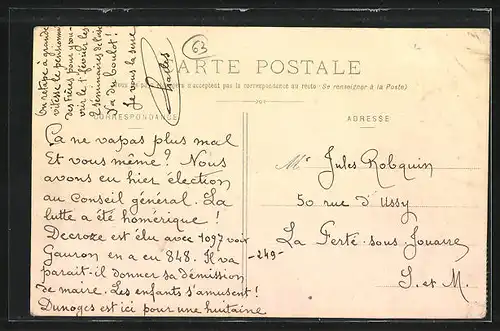 On retape à grande
vitesse le pensionnat
des Frères pour y rou-
vrir le 1er février les
2 séminaires de
Y a du boulot !
Je vous la serre
Charles
63
CARTE POSTALE
Tous les pays étrangers n'acceptent pas la correspondance au recto - Se renseigner à la Poste)
CORRESPONDANCE
ADRESSE
Ça ne va pas plus mal
Et vous même ? Nous
avons eu hier élection
au Conseil général. La
lutte a été homérique !
Decroze est élu avec 1097 voix
Gauron en a eu 848. Il va
-249-
parait-il donner sa démission
de maire. Les enfants s'amusent !
Dunoges est ici pour une huitaine
Mr Jules Robquin
50 rue d'Ussy
La Ferté-sous-Jouarre
S. et M.